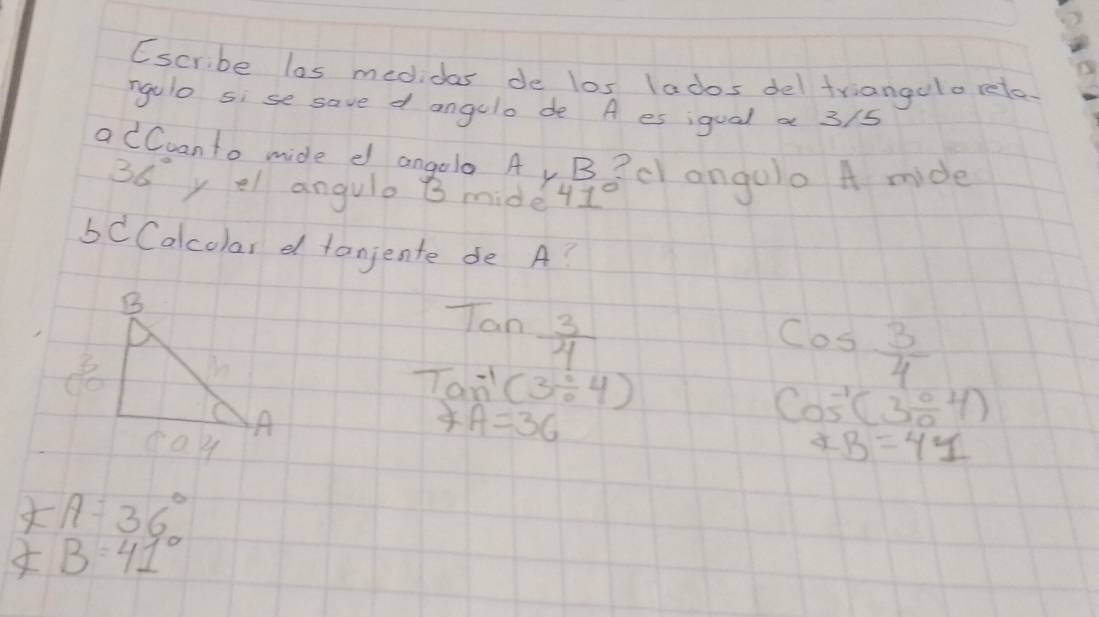 Escribe las medidas de los lados del triangulo reta-
ngulo si se save el angulo de A es igual a 3/5
a ¿Cuanto mide el angulo A y B? el angulo A mide
36° y el angulo B mide 41°
b ¿Calcolar el tanjente de A?
B
Tan 3/4
Cos 3/4
3
h
co
Tan⁻¹(3÷4)
Cos⁻¹(3÷4)
A
∡A=36
ca 4
∡B=41
∡A=36°
∡B=41°